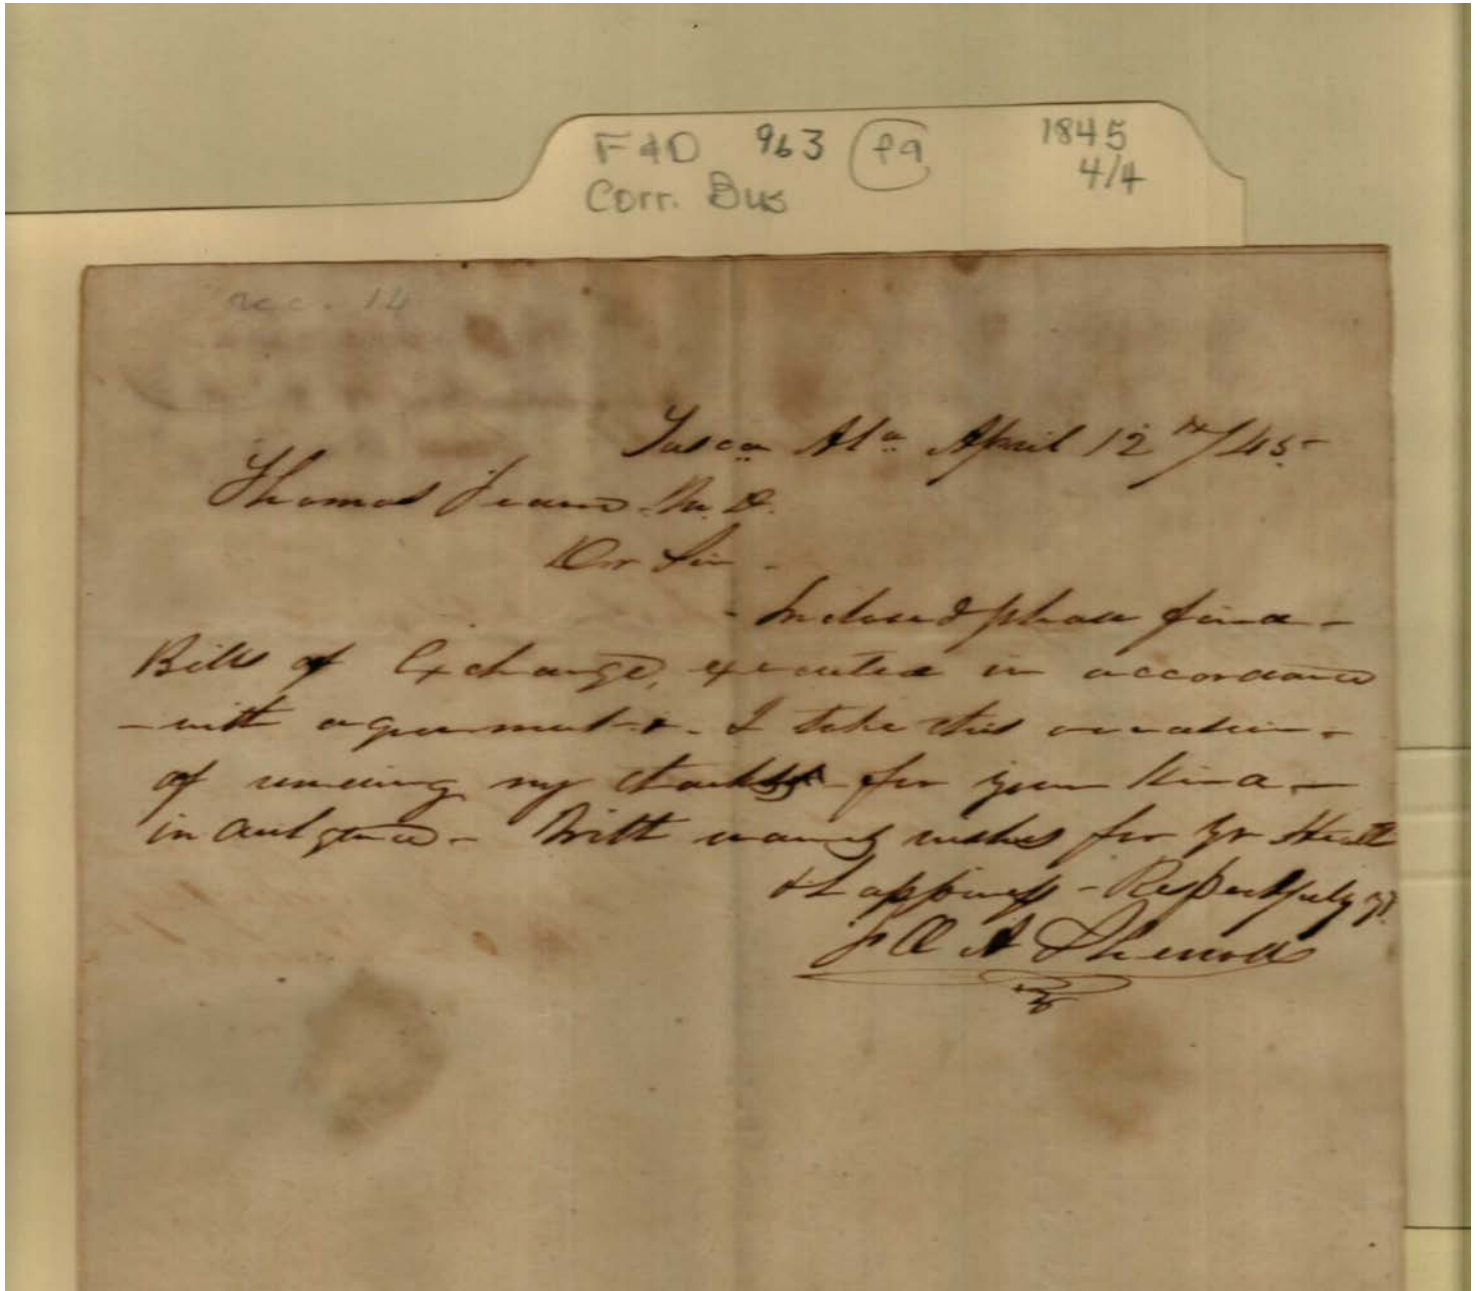 F&D 963 f9 1845
4/4
Corr. Bus
rec. 14
Tusca Ala April 12th/45
Thomas M.D.
Dr Sir -
- Inclosed please find -
Bills of Exchange, executed in accordance
- with agreement - I take this occasion -
of renewing my thanks for your kind -
indulgence - With warmest wishes for yr Health
& happiness - Respectfully yr.
A Sherrod